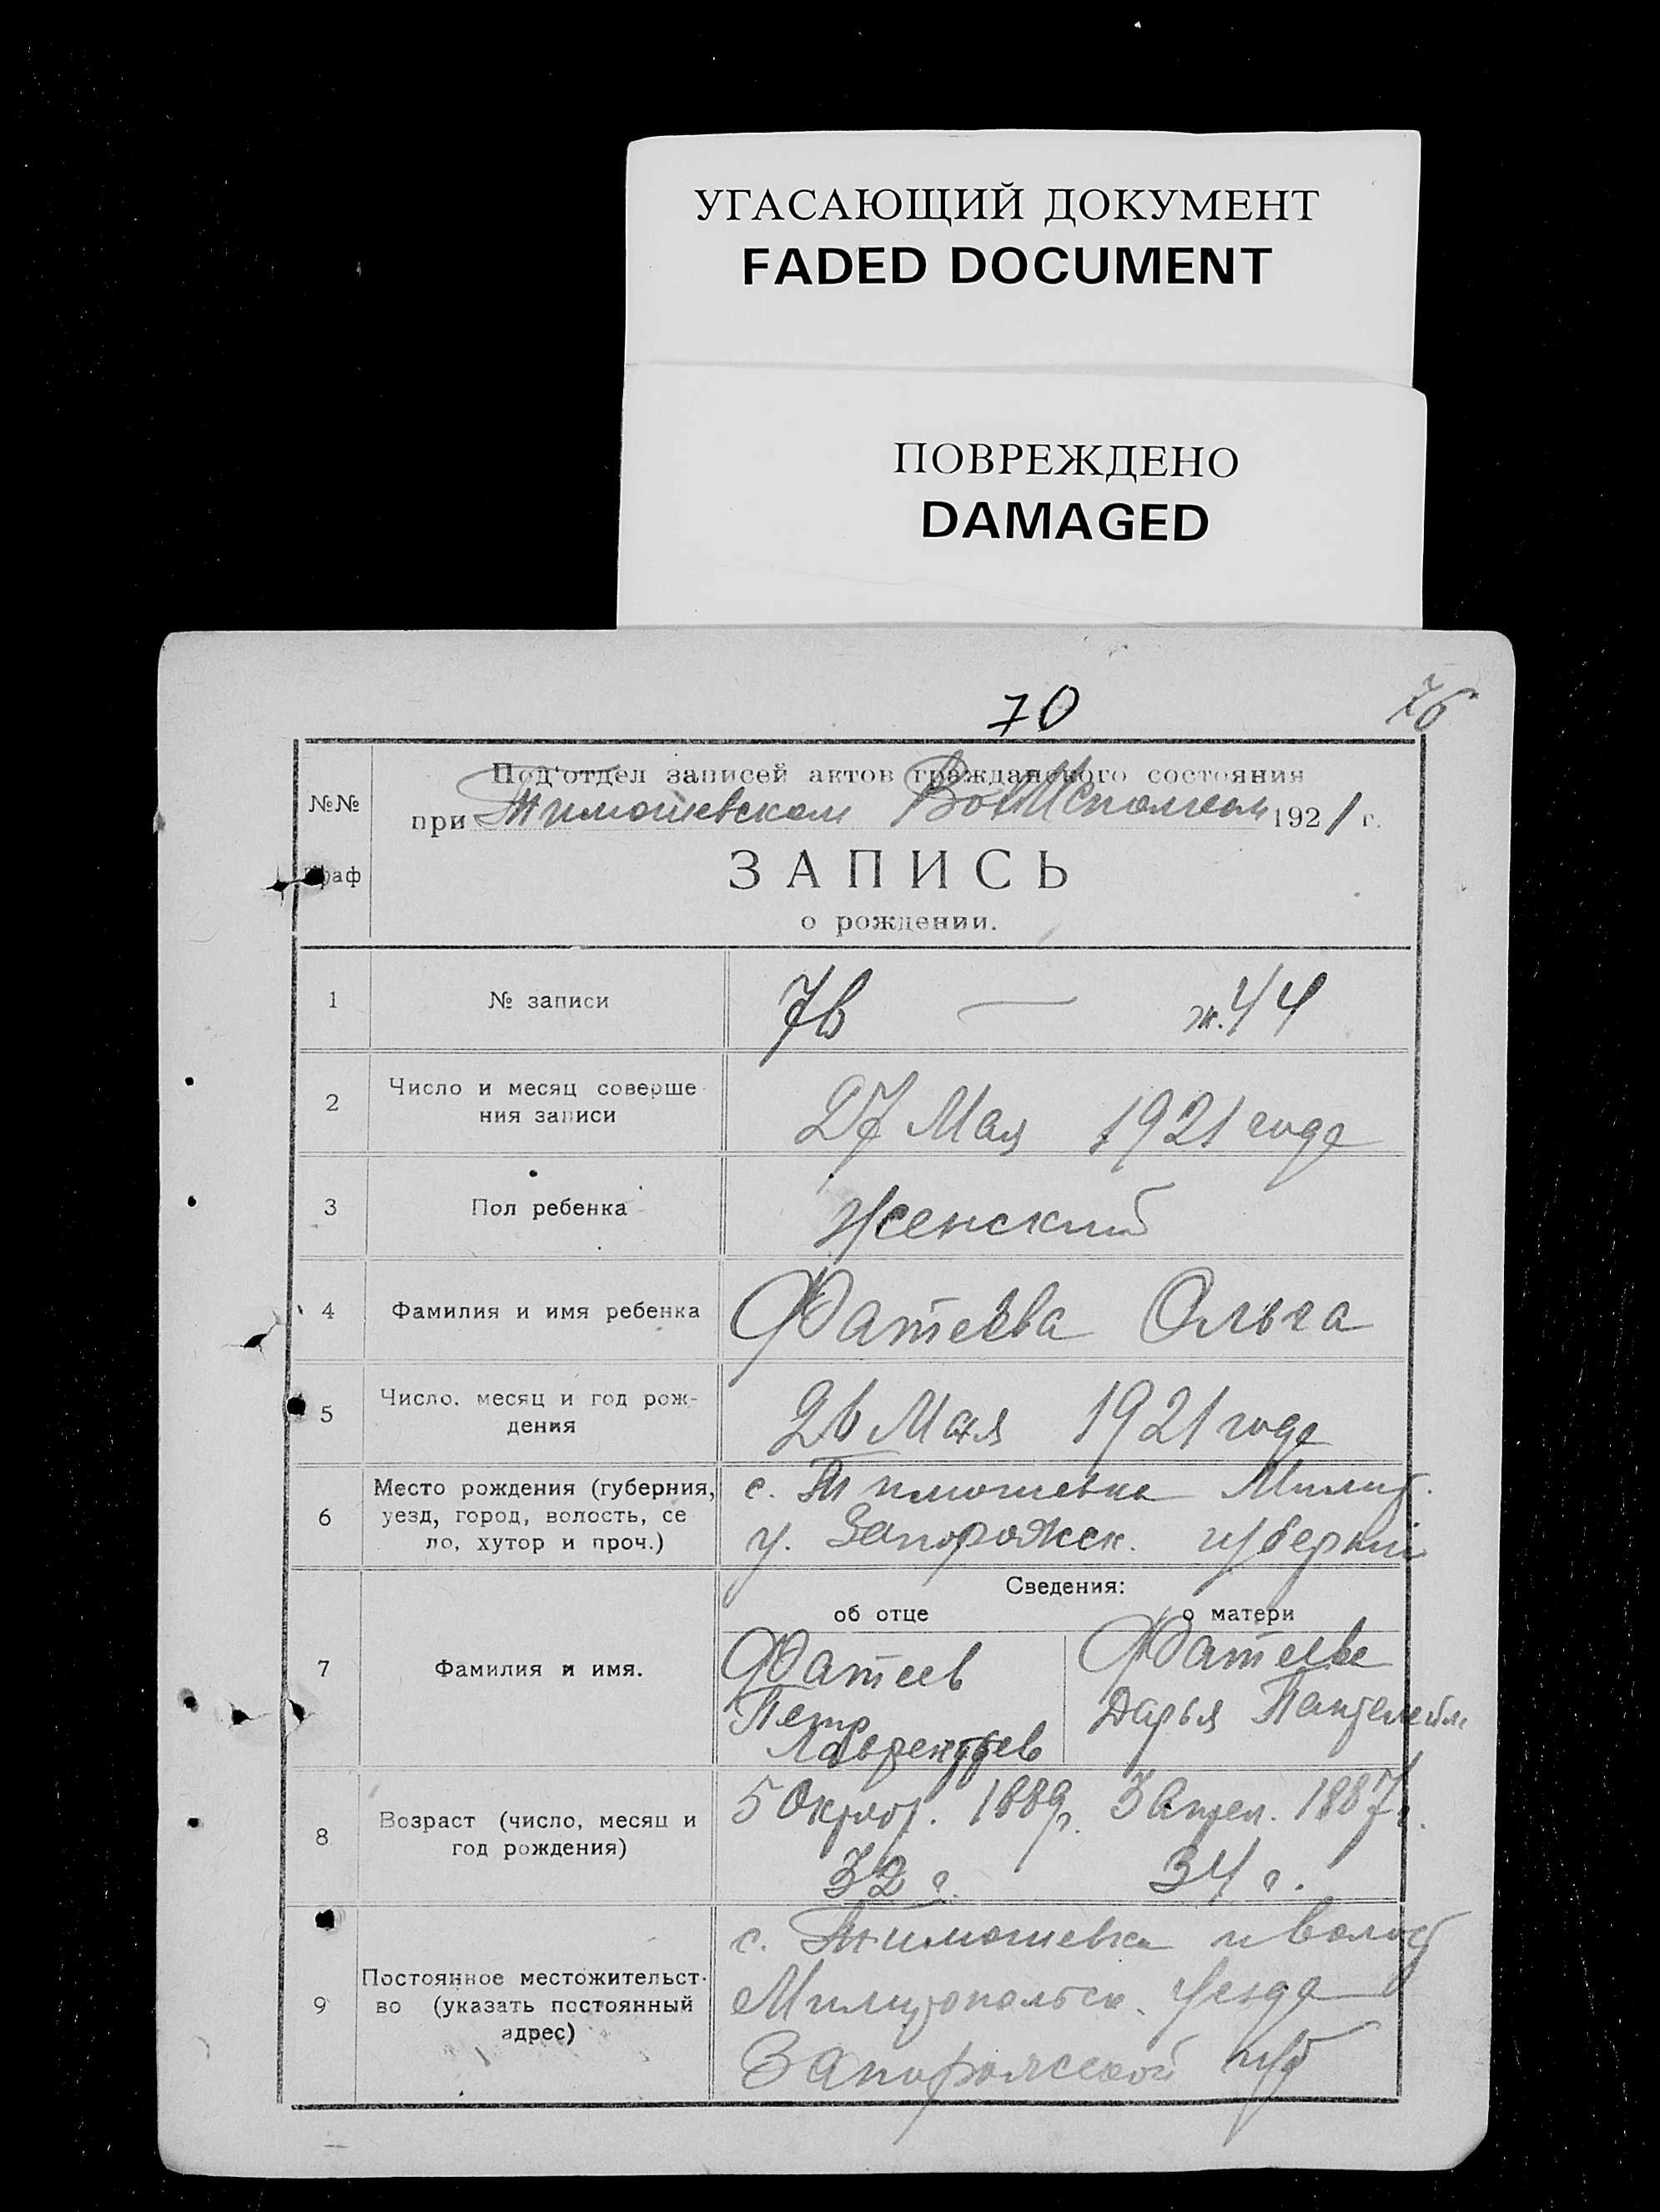 УГАСАЮЩИЙ ДОКУМЕНТ
FADED DOCUMENT
ПОВРЕЖДЕНО
DAMAGED
70
76
№№
граф
Под'отдел записей актов гражданского состояния
при Тимошевском ВолИсполком 1921 г.
ЗАПИСЬ
о рождении.
1 № записи 76 — ж. 44
2 Число и месяц соверше
ния записи
27 Мая 1921 года
3 Пол ребенка Женский
4 Фамилия и имя ребенка Фатеева Ольга
5 Число. месяц и год рож-
дения
26 Мая 1921 года
6 Место рождения (губерния,
уезд, город, волость, се
ло, хутор и проч.)
с. Тимошевка Милит.
у. Запорожск. губернии
Сведения:
об отце о матери
7 Фамилия и имя.
Фатеев
Петр
Лаврентьев
Фатеева
Дарья Пантелейм.
8 Возраст (число, месяц и
год рождения)
5 Октяб. 1889 г. 3 Апрел. 1887 г.
32 г. 34 г.
9 Постоянное местожительст-
во (указать постоянный
адрес)
с. Тимошевка и волост
Милитопольск. Уезда
Запорожской губ